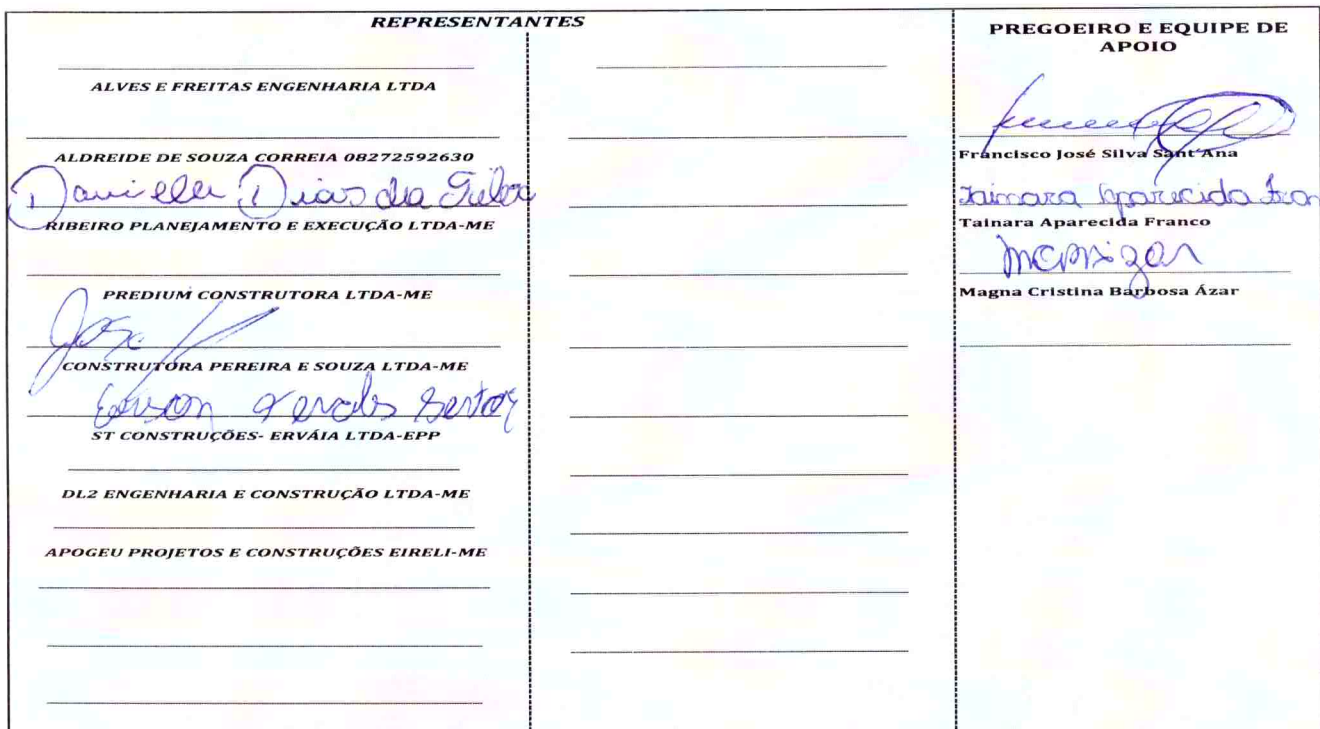 REPRESENTANTES
ALVES E FREITAS ENGENHARIA LTDA
ALDREIDE DE SOUZA CORREIA 08272592630
Danielle Dias da Silva
RIBEIRO PLANEJAMENTO E EXECUÇÃO LTDA-ME
PREDIUM CONSTRUTORA LTDA-ME
José
CONSTRUTORA PEREIRA E SOUZA LTDA-ME
ST CONSTRUÇÕES- ERVÁIA LTDA-EPP
DL2 ENGENHARIA E CONSTRUÇÃO LTDA-ME
APOGEU PROJETOS E CONSTRUÇÕES EIRELI-ME
PREGOEIRO E EQUIPE DE
APOIO
Francisco José Silva Sant'Ana
Tainara Aparecida Fran
Tainara Aparecida Franco
Magna Cristina Barbosa Ázar